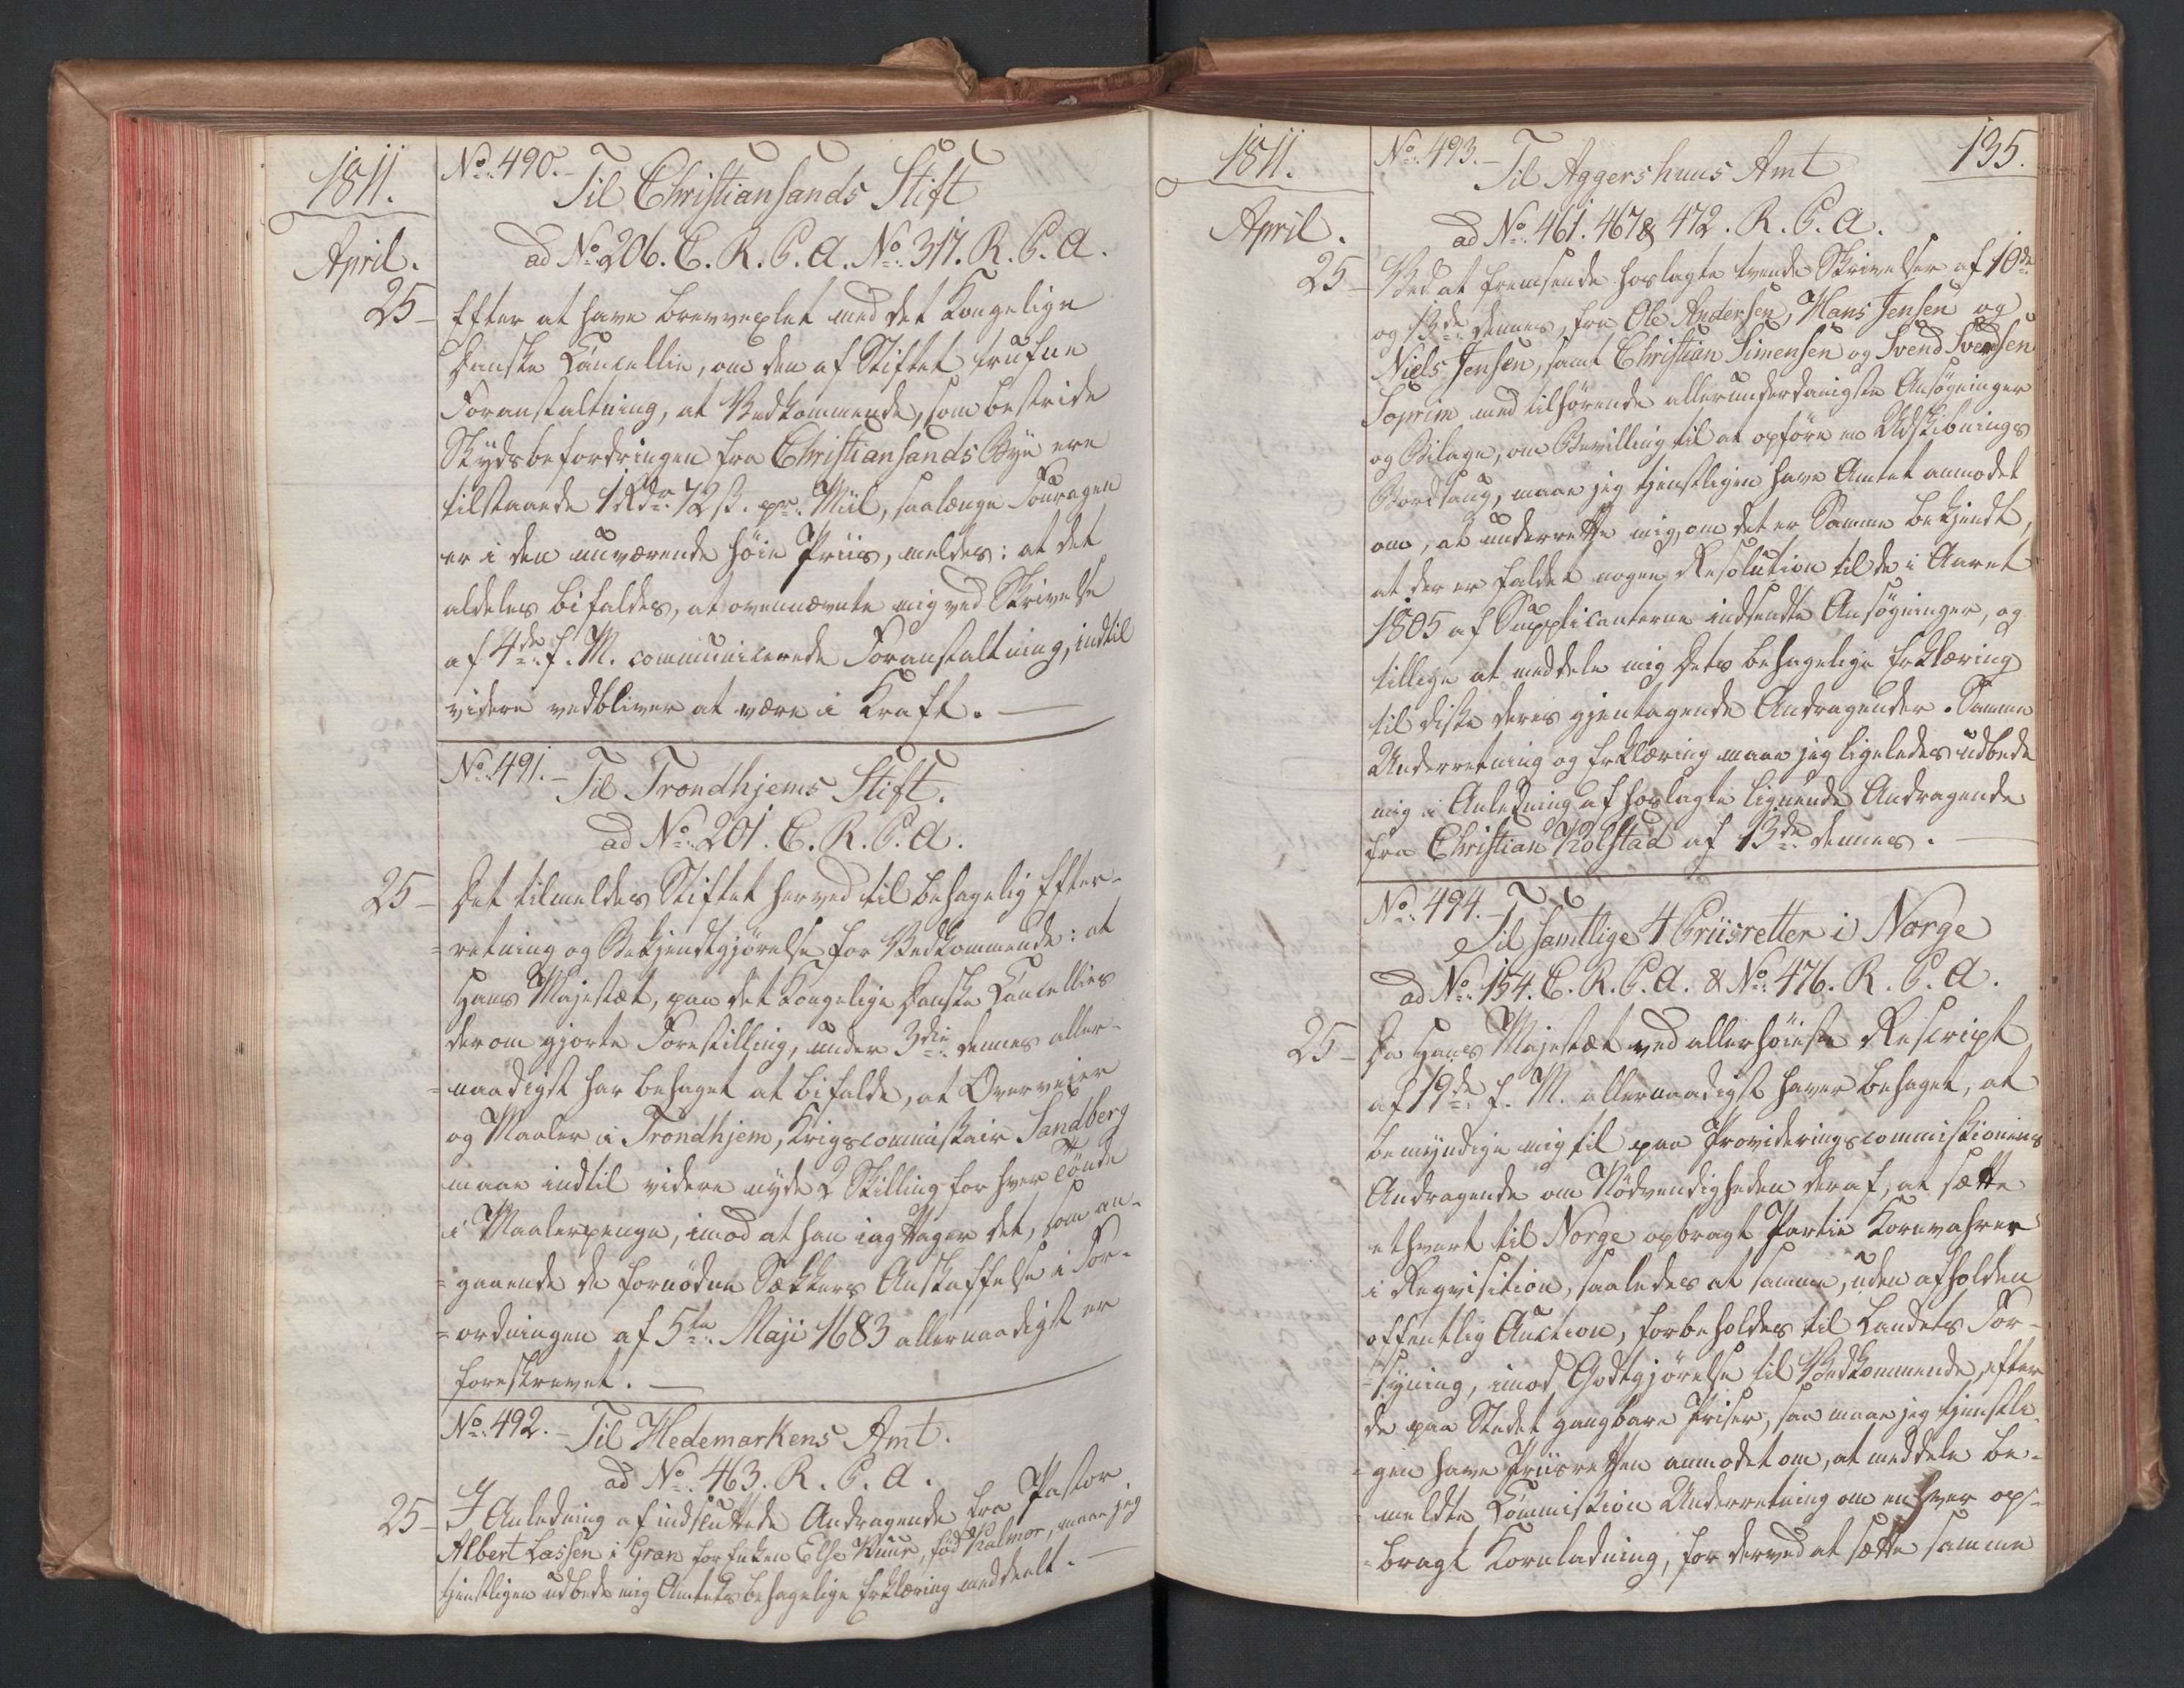 1811.
April.
No. 490.
Til Christiansands Stift
ad No. 206. C. R. P. A. No. 317. R. P. A.
25 – Efter at have brevvexlet med det Kongelige
Danske Cancellie, om den af Stiftet trufne
Foranstaltning, at Vedkommende, som bestride
Skydsbefordringen fra Christiansands Bye ere
tilstaaede 1 Rdr. 72 ß. pr. Miil, saalænge Fouragen
er i den nuværende høie Priis, meldes: at det
aldeles bifaldes, at ovennævnte mig ved Skrivelse
af 4de f. M. communicerede Foranstaltning, indtil
videre vedbliver at være i Kraft. —
No. 491. – Til Trondhjems Stift.
ad No. 201. C. R. P. A.
25 – Det tilmeldes Stiftet herved til behagelig Efter-
=retning og Bekjendtgjørelse for Vedkommende: at
Hans Majestæt, paa det Kongelige Danske Cancellies
derom gjorte Forestilling, under 3die dennes aller-
=naadigst har behaget at bifalde, at Overveier
og Maaler i Trondhjem, Krigscommissair Sandberg
maae indtil videre nyde 2 Skilling for hver Tönde
i Maalerpenge, imod at han iagttager det, som an-
=gaaende de fornødne Sækkers Anskaffelse i For-
=ordningen af 5te Maji 1683 allernaadigst er
foreskrevet. —
No. 492. – Til Hedemarkens Amt.
ad No. 463. R. P. A.
25 – I Anledning af indsluttede Andragende fra Pastor
Albert Lassen i Gran for Enken Else Ruur, fød Kalmor, maae jeg
tjenstligen udbede mig Amtets behagelige Erklæring meddeelt. —
1811.
April.
135.
No. 493. –
Til Aggershuus Amt
ad No. 461. 467 & 472. R. P. A.
25 – Ved at fremsende hoslagte tvende Skrivelser af 10de
og 13de dennes, fra Ole Andersen, Hans Jensen og
Niels Jensen, samt Christian Simensen og Svend Svendsen
Soprim med tilhørende allerunderdanigste Ansøgninger
og Bilage, om Bevilling til at opføre en Udskibnings
Bordsaug, maae jeg tjenstligen have Amtet anmodet
om, at underrette mig, om det er Samme bekjendt,
at der er faldet nogen Resolution til de i Aaret
1805 af Supplicanterne indsendte Ansøgninger, og
tillige at meddele mig Dets behagelige Erklæring
til disse deres gjentagende Andragender. Samme
Underretning og Erklæring maae jeg ligeledes udbede
mig i Anledning af hoslagte lignende Andragende
fra Christian Kolstad af 13de dennes. —
No. 494. –
Til samtlige 4 Priisretter i Norge
ad No. 154. C. R. P. A. & No. 476. R. P. A.
25 – Da Hans Majestæt ved allerhöieste Rescript
af 19de f. M. allernaadigst haver behaget, at
bemyndige mig til paa Provideringscommissionens
Andragende om Nödvendigheden deraf, at sætte
ethvert til Norge opbragt Partie Kornvahrer
i Reqvisition, saaledes at samme, uden afholden
offentlig Auction, forbeholdes til Landets For-
=syning, imod Godtgjörelse til Vedkommende, efter
de paa Stedet gangbare Priser, saa maae jeg tjenstli-
=gen have Priisretten anmodet om, at meddele be-
=meldte Commission Underretning om enhver op-
=bragt Kornladning, for derved at sætte samme